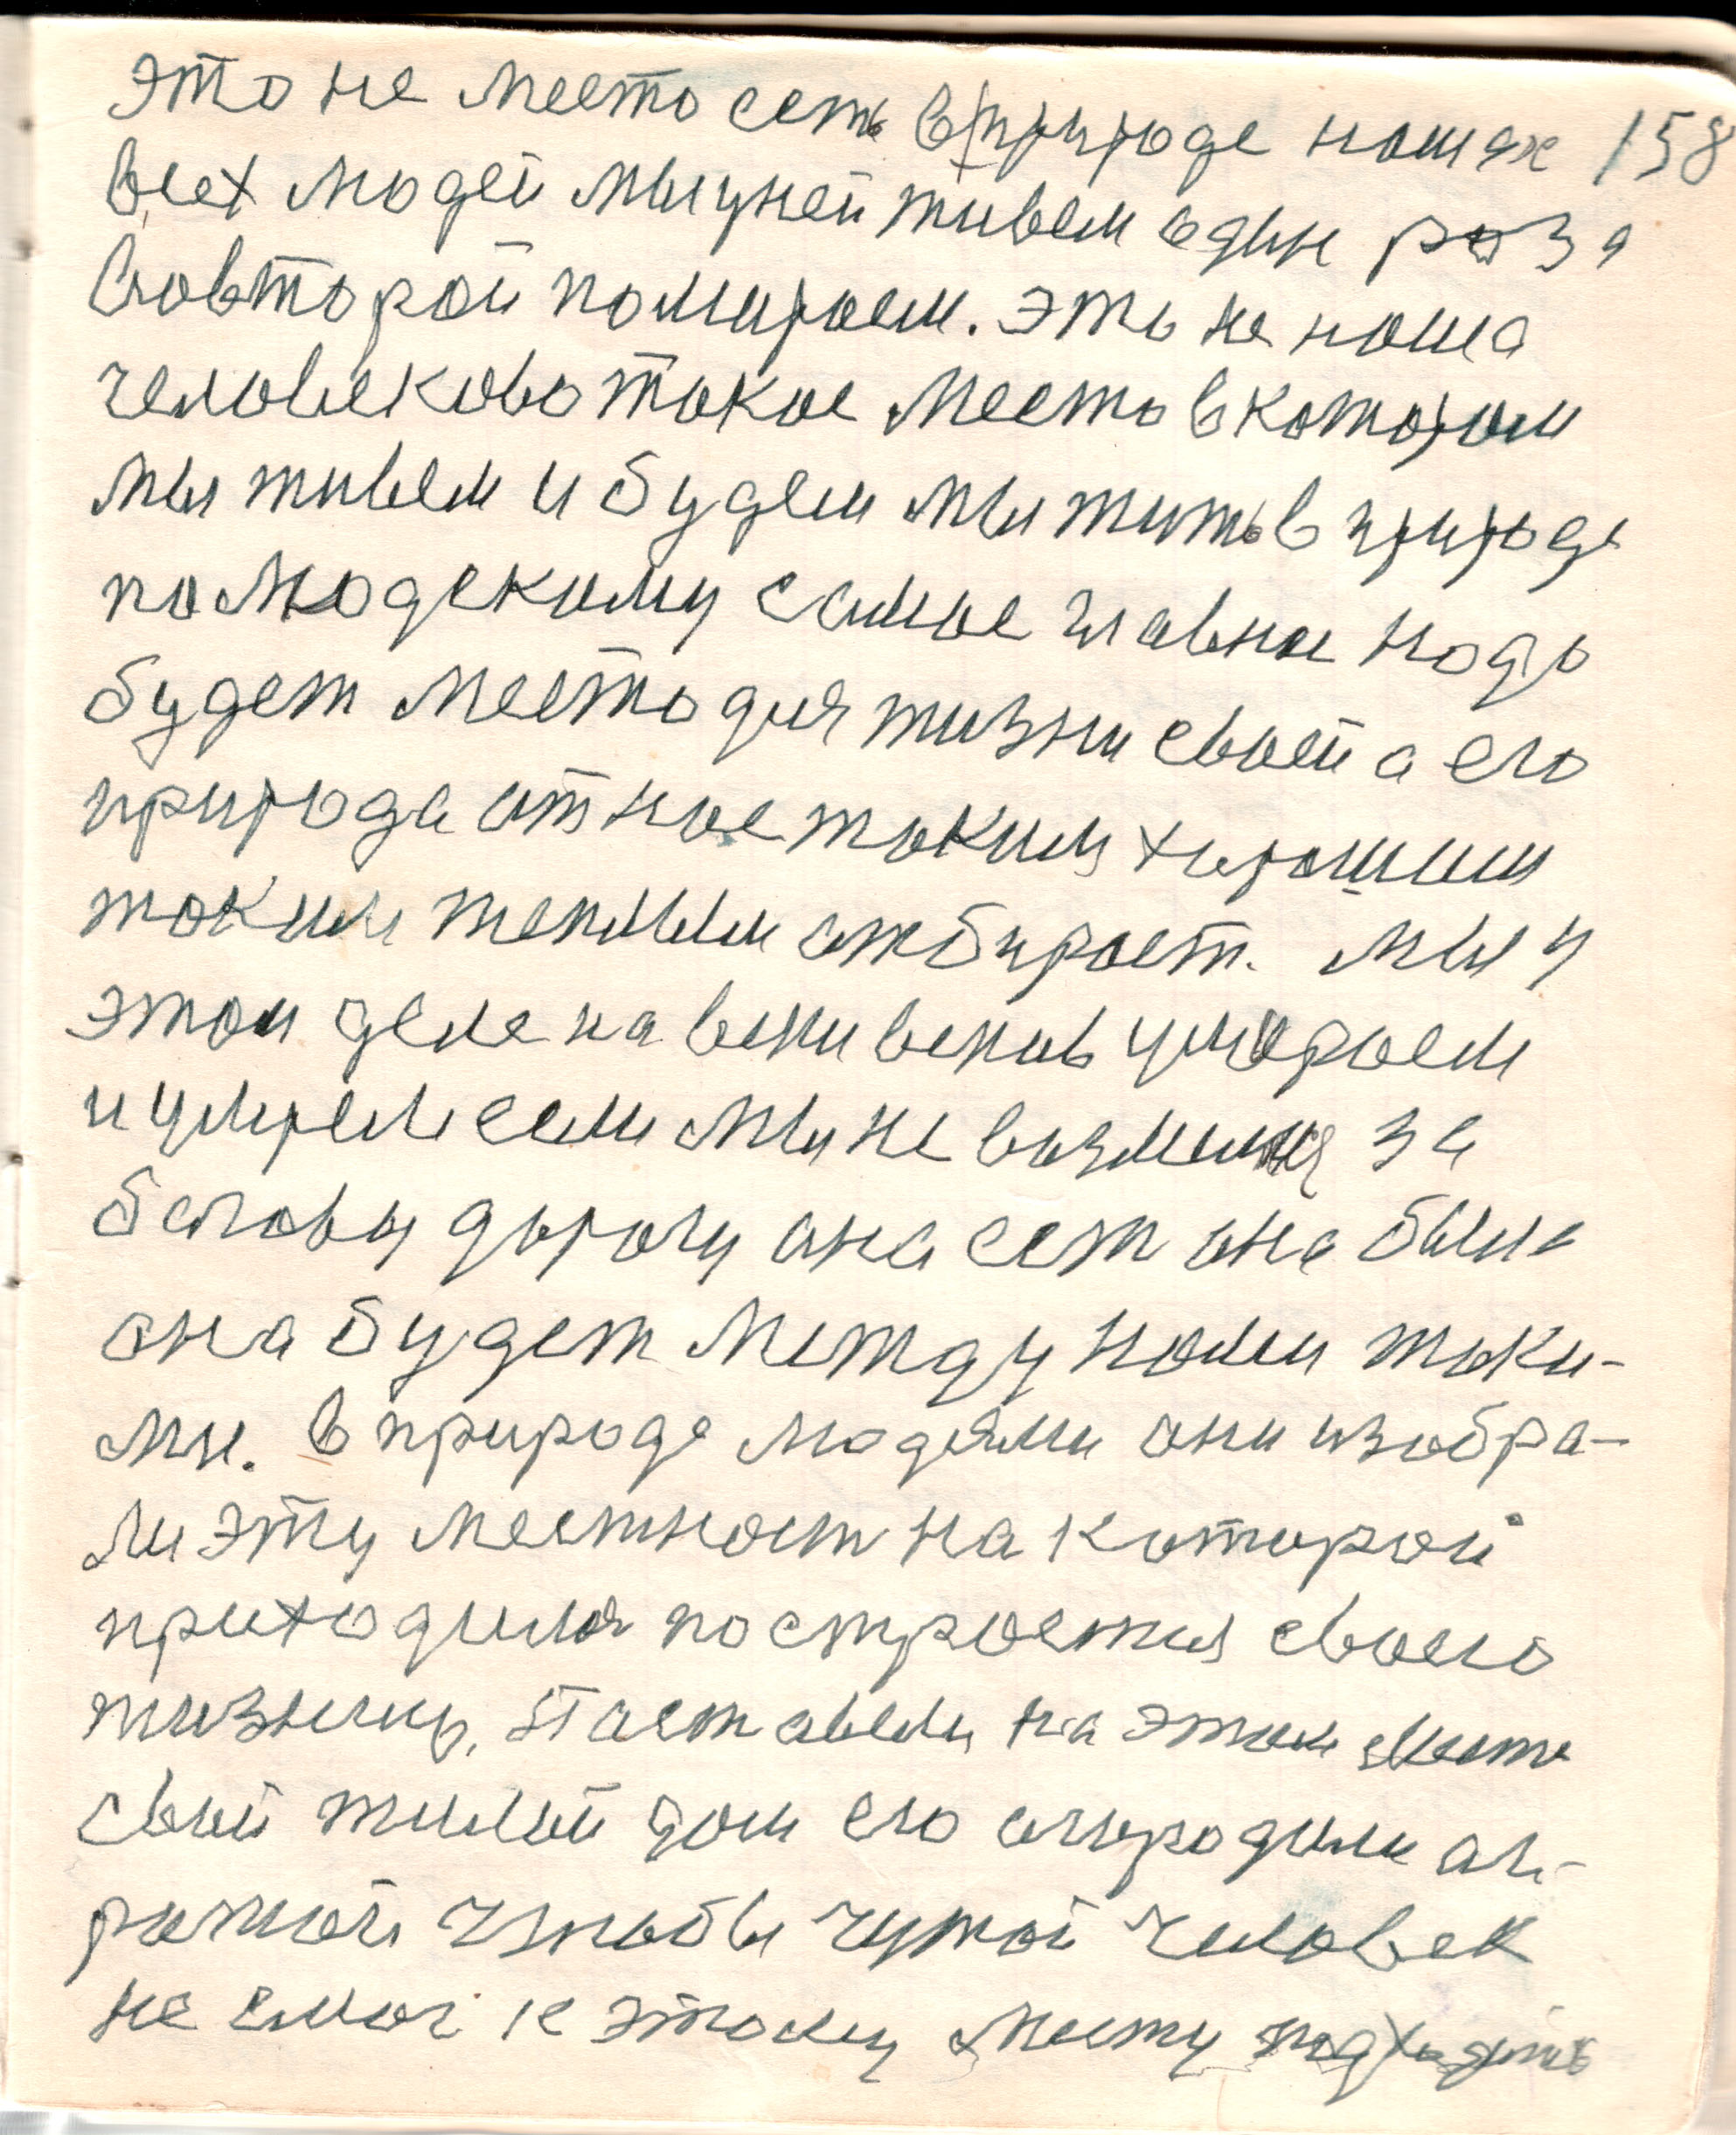 это не место есть в природе нашех 158
всех людей мы у ней живем один раз а
во второй помираем. это не наша
человеково такое место в котором
мы живем и будем мы жить в природе
по людскому самое главное надо
будет место для жизни своей а его
природа от нас таким хорошим
таким теплым отбирает. мы у
этом деле на веки веков умираем
и умрем если мы не возмемся за
богову дорогу она ест она была
она будет между нами таки-
ми. в природе людями они избра-
ли эту местност на которой
приходился построетця своею
жизнию, поставели на этом месте
свой жилой дом его огородили аг-
рожой чтобы чужой человек
не смог к этому месту подходить